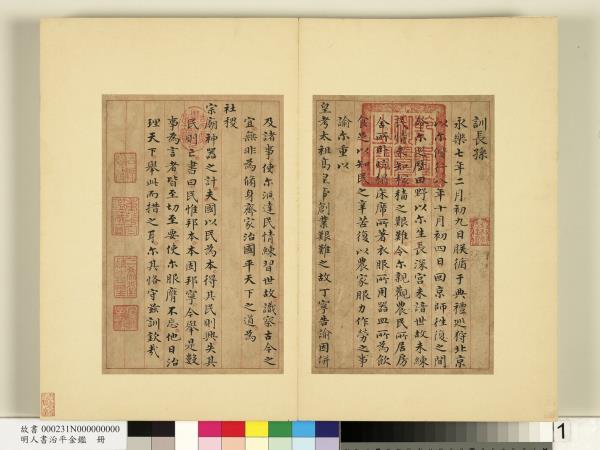 訓長孫
永樂七年二月初九日朕循于典禮巡狩北京
以爾偕行八年十月初四日回京師往復之間
令爾民歷田野以爾生長深宮未諳世故未練
民情未知稼穡之艱難令爾親觀農民所居房
舍所啡鋪床席所著衣服所用器皿所為飲
食進以知民之辛苦復以農家服力作勞之事
諭爾重以
皇考太祖高皇帝創業艱難之故丁寧告諭因併
及諸事使爾洞達民情練習世故識察古今之
宜無非為脩身齊家治國平天下之道為
社稷
宗廟神器之計夫國以民為本得其民則興失其
民則亡書曰民惟邦本本固邦寧今舉是數
事為言者皆至切至要使爾服膺不忘他日治
理天下舉此而措之耳爾其恪守茲訓欽哉
故書 000231N000000000
明人書治平金鑑 冊
1